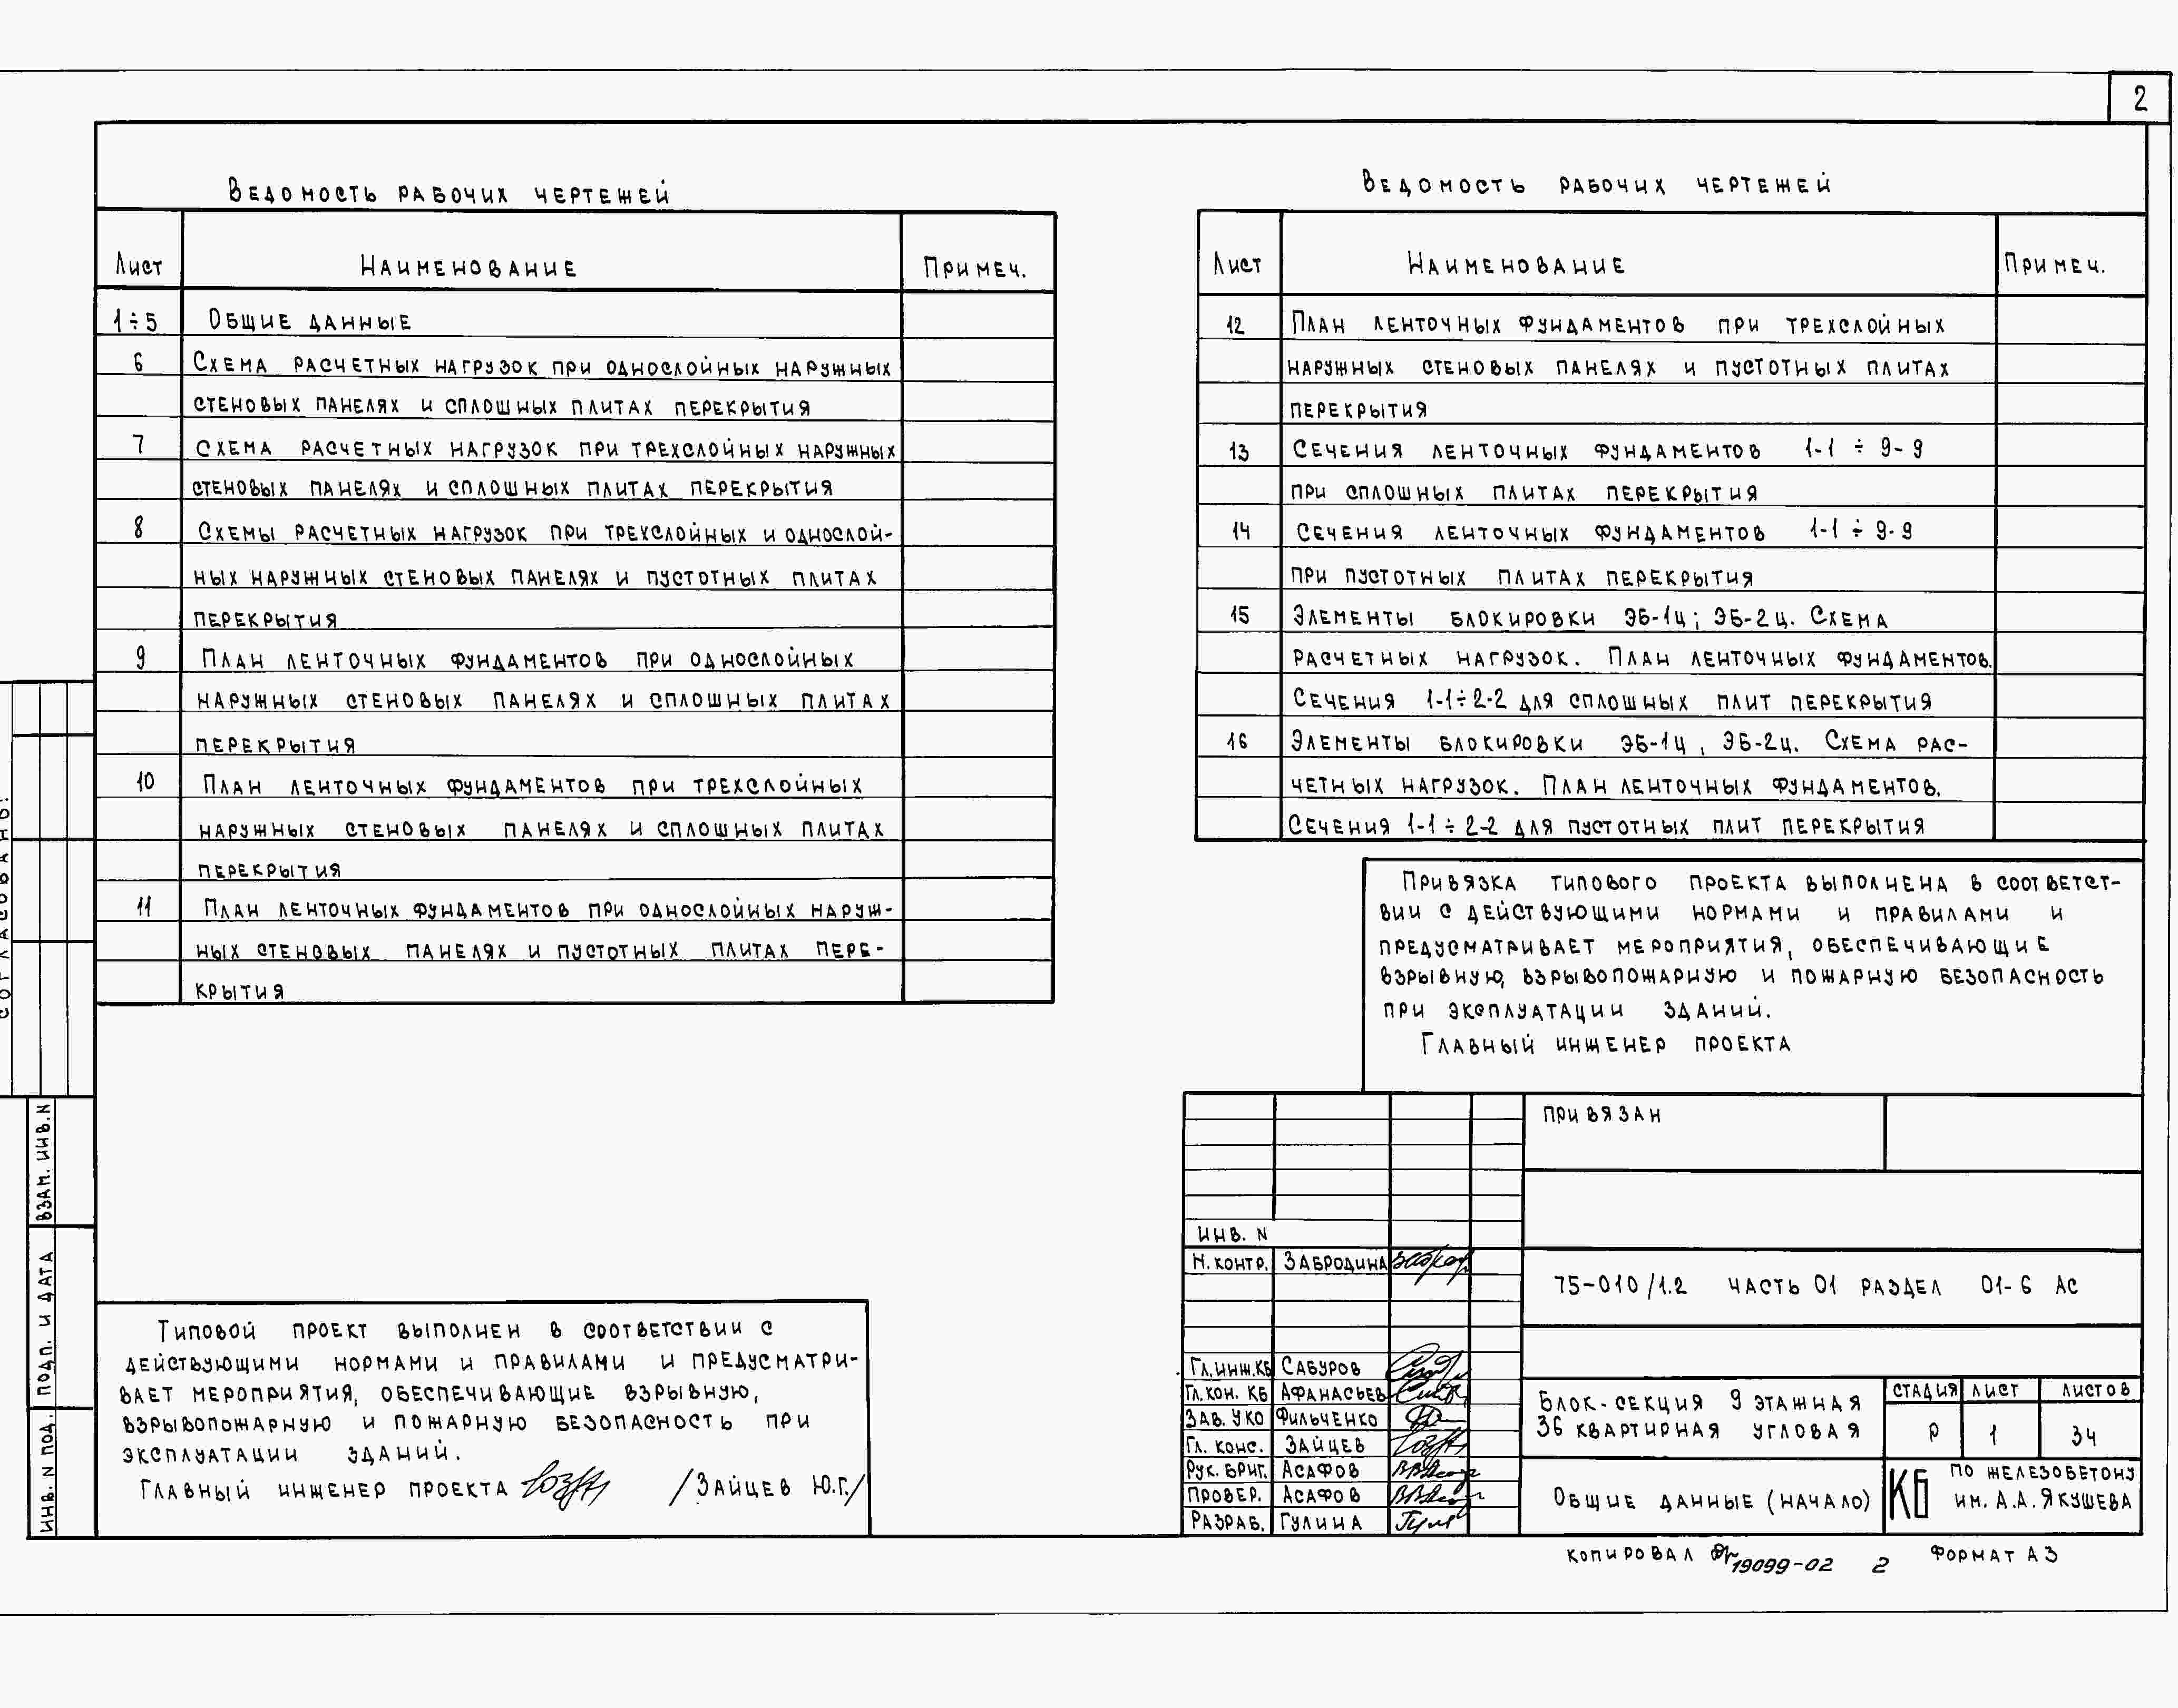 2
Ведомость рабочих чертежей
Лист Наименование Примеч.
1÷5 Общие данные
6 Схема расчетных нагрузок при однослойных наружных
стеновых панелях и сплошных плитах перекрытия
7 Схема расчетных нагрузок при трехслойных наружных
стеновых панелях и сплошных плитах перекрытия
8 Схемы расчетных нагрузок при трехслойных и однослой-
ных наружных стеновых панелях и пустотных плитах
перекрытия
9 План ленточных фундаментов при однослойных
наружных стеновых панелях и сплошных плитах
перекрытия
10 План ленточных фундаментов при трехслойных
наружных стеновых панелях и сплошных плитах
перекрытия
11 План ленточных фундаментов при однослойных наруж-
ных стеновых панелях и пустотных плитах пере-
крытия
Ведомость рабочих чертежей
Лист Наименование Примеч.
12 План ленточных фундаментов при трехслойных
наружных стеновых панелях и пустотных плитах
перекрытия
13 Сечения ленточных фундаментов 1-1 ÷ 9-9
при сплошных плитах перекрытия
14 Сечения ленточных фундаментов 1-1 ÷ 9-9
при пустотных плитах перекрытия
15 Элементы блокировки ЭБ-1ц; ЭБ-2ц. Схема
расчетных нагрузок. План ленточных фундаментов.
Сечения 1-1÷2-2 для сплошных плит перекрытия
16 Элементы блокировки ЭБ-1ц, ЭБ-2ц. Схема рас-
четных нагрузок. План ленточных фундаментов.
Сечения 1-1÷2-2 для пустотных плит перекрытия
Привязка типового проекта выполнена в соответст-
вии с действующими нормами и правилами и
предусматривает мероприятия, обеспечивающие
взрывную, взрывопожарную и пожарную безопасность
при эксплуатации зданий.
Главный инженер проекта
Типовой проект выполнен в соответствии с
действующими нормами и правилами и предусматри-
вает мероприятия, обеспечивающие взрывную,
взрывопожарную и пожарную безопасность при
эксплуатации зданий.
Главный инженер проекта /Зайцев Ю.Г./
Согласовано:
Взам. инв. N
Подп. и дата
Инв. N под.
Привязан
Инв. N
Н. контр. Забродина
75-010/1.2 часть 01 раздел 01-6 АС
Гл. инж. КБ Сабуров
Гл. кон. КБ Афанасьев
Зав. УКО Фильченко
Гл. конс. Зайцев
Рук. бриг. Асафов
Провер. Асафов
Разраб. Гулина
Блок-секция 9 этажная
36 квартирная угловая
Стадия Лист Листов
Р 1 34
Общие данные (начало)
КБ по железобетону
им. А.А. Якушева
Копировал 19099-02 2 Формат А3